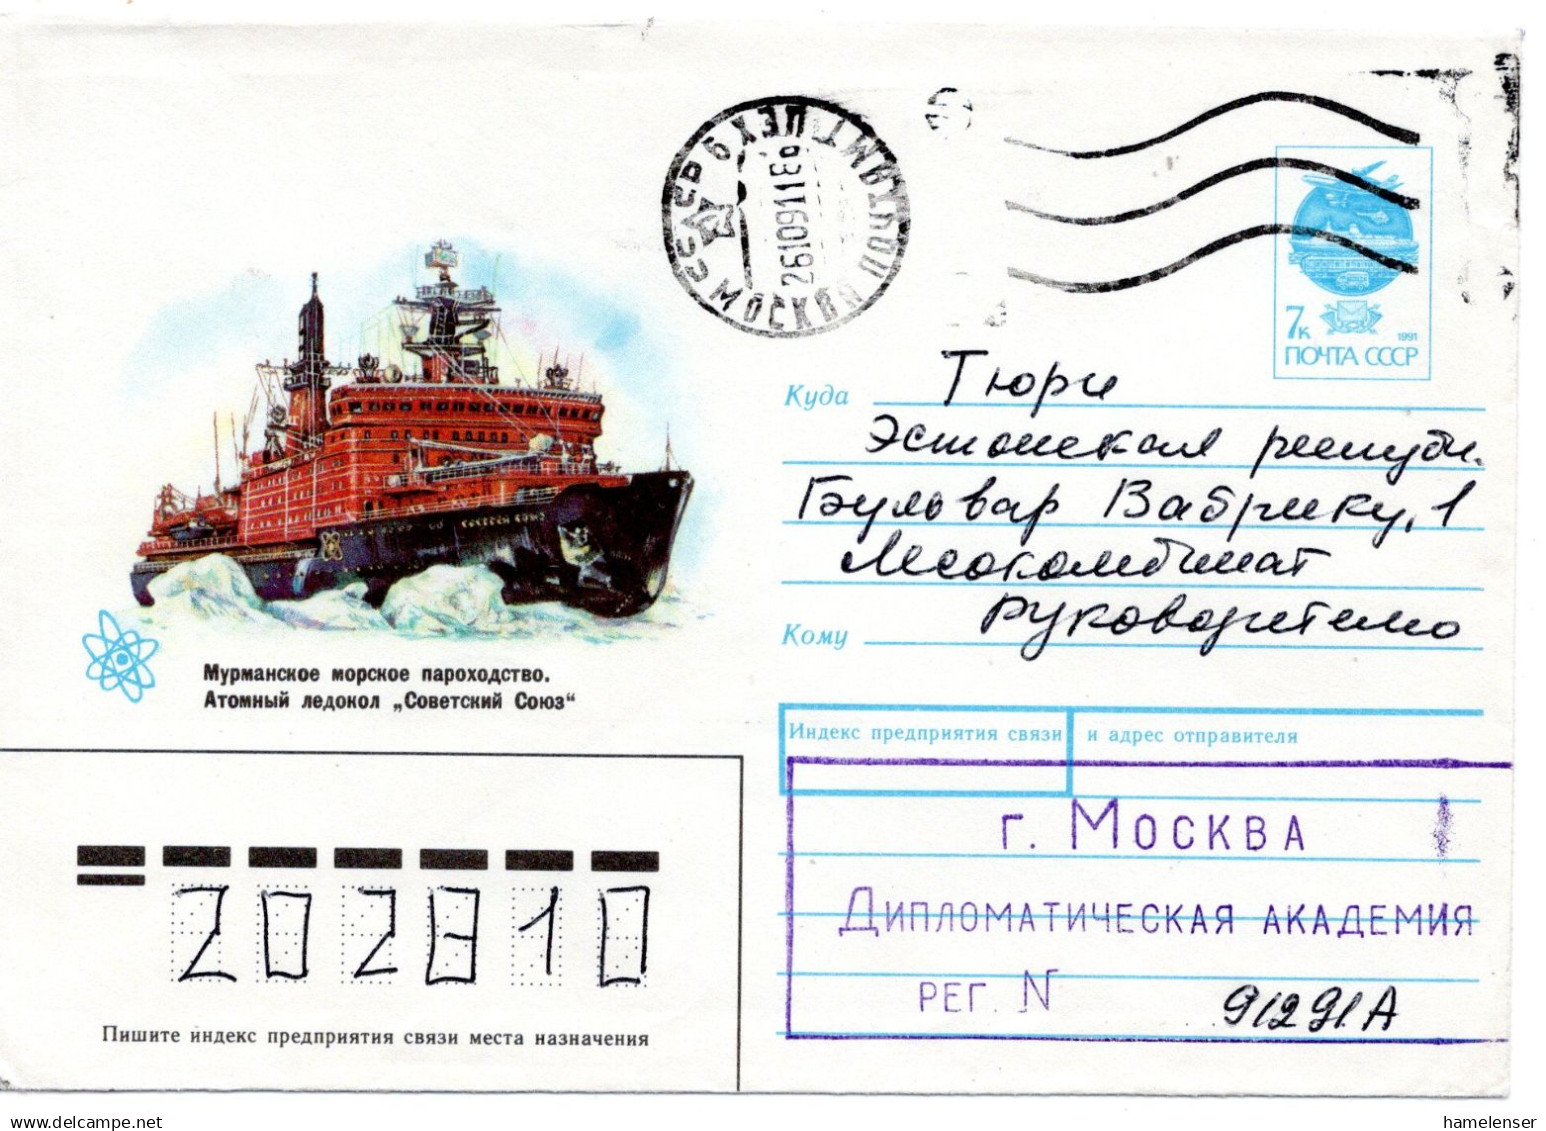 СССР МОСКВА ПОЧТАМТ ЦЕХ 9
26109111
7к
1991
ПОЧТА СССР
Куда Тюри
Эстонская республ.
Бульвар Вабрику, 1
Лесокомбинат
Кому руководителю
СОВЕТСКИЙ СОЮЗ
Мурманское морское пароходство.
Атомный ледокол „Советский Союз“
Индекс предприятия связи и адрес отправителя
г. МОСКВА
ДИПЛОМАТИЧЕСКАЯ АКАДЕМИЯ
РЕГ. N 91291А
202810
Пишите индекс предприятия связи места назначения
hamelenser